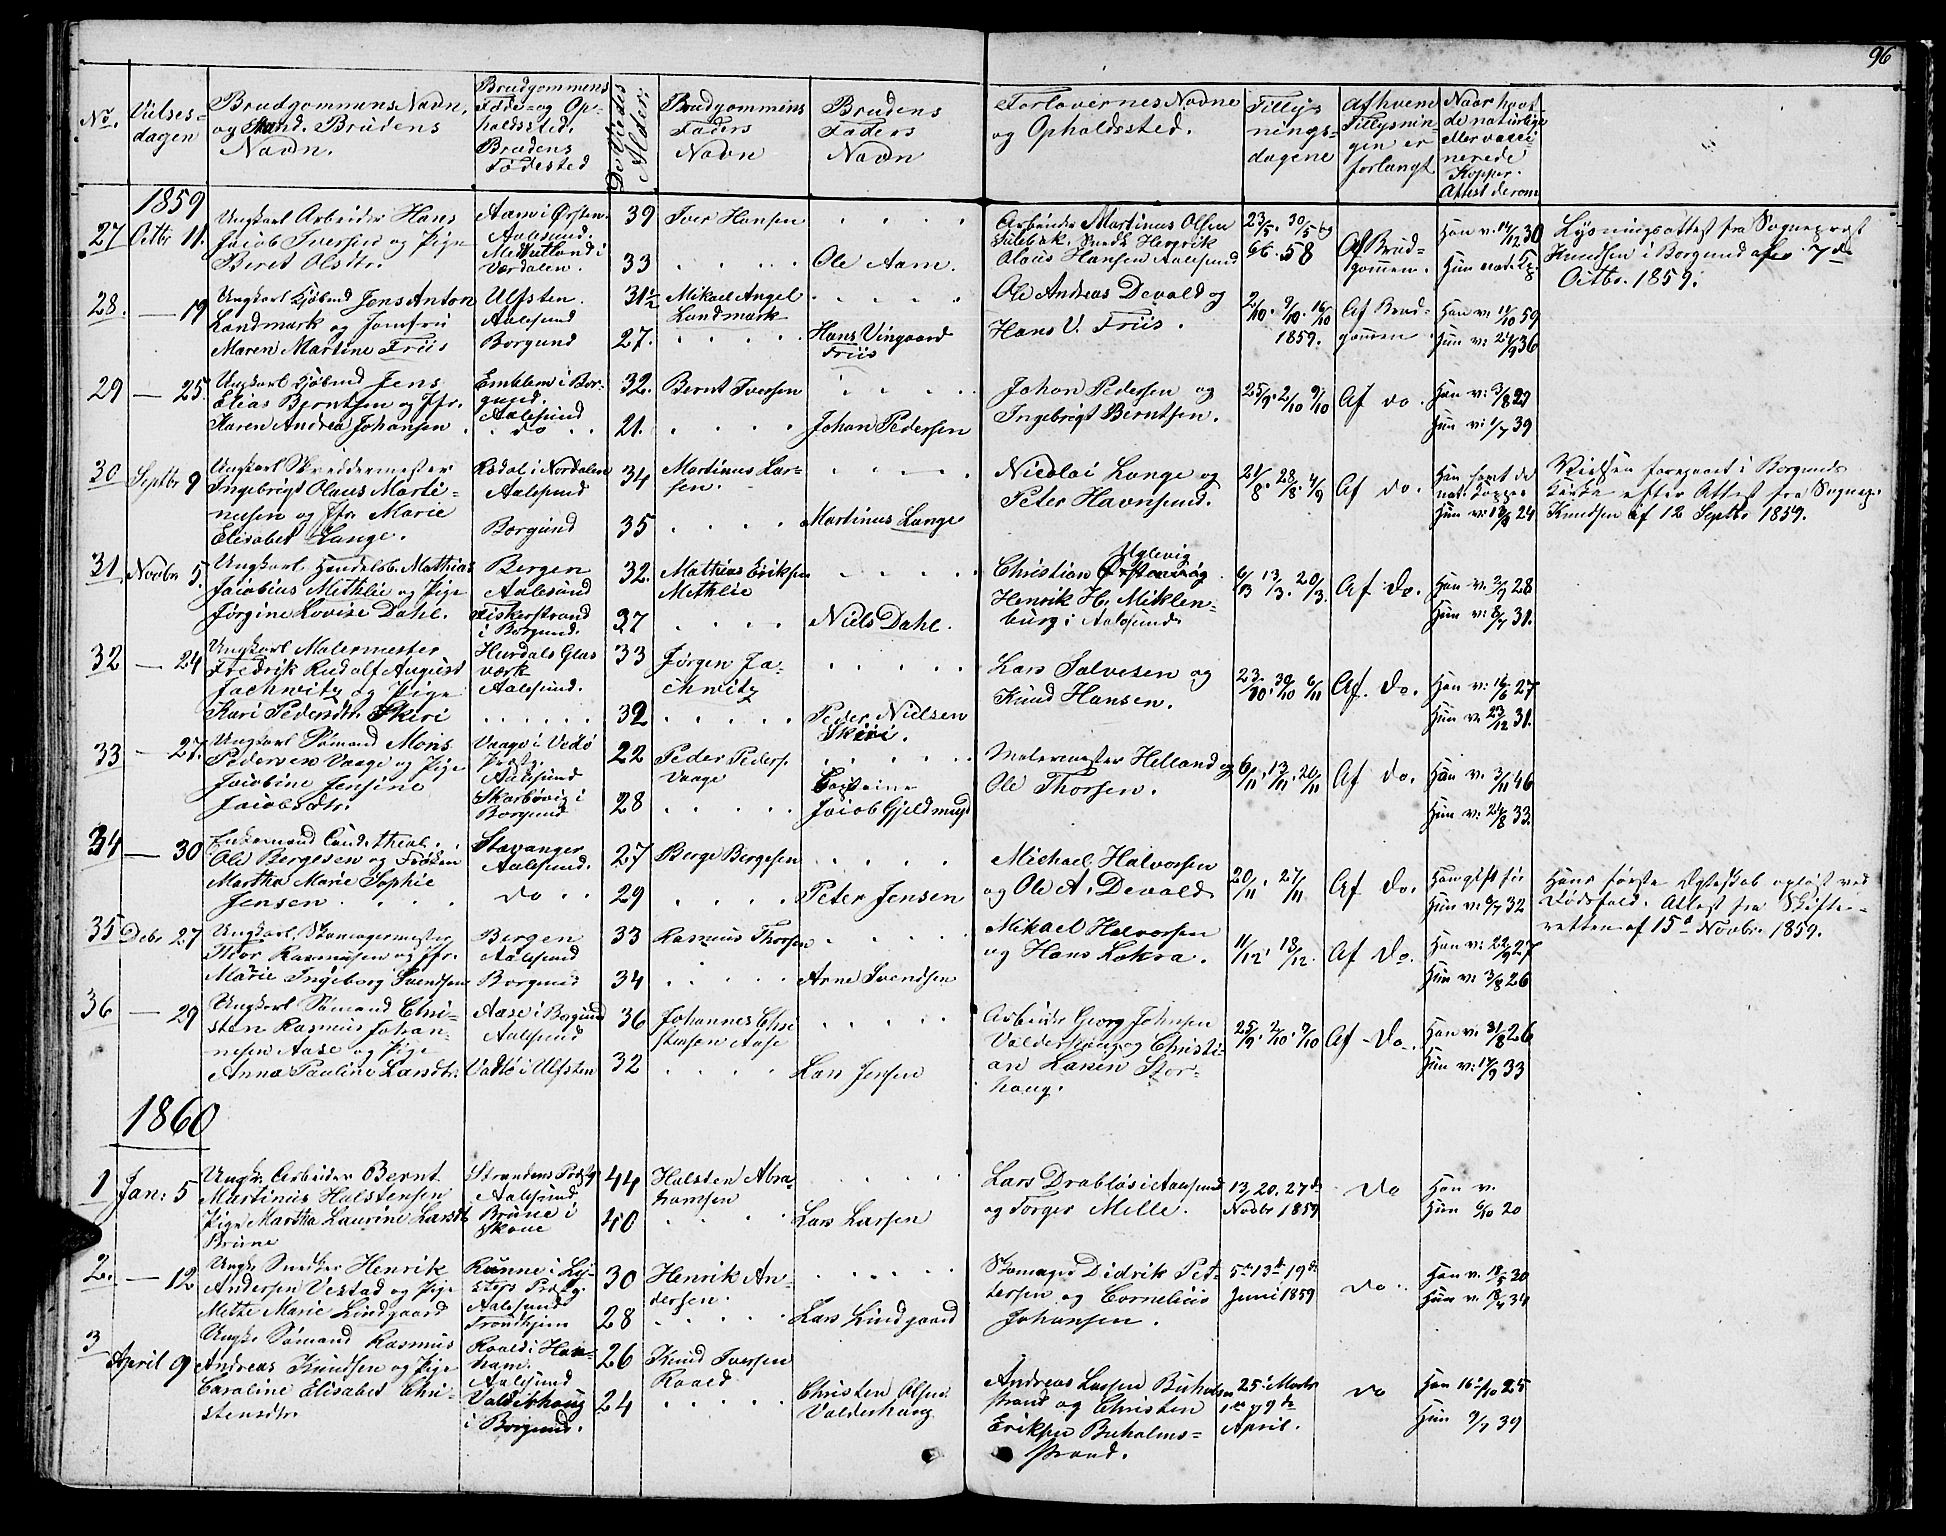 96
No.
Vielses-
dagen
Brudgommens Navn,
og Stand. Brudens
Navn.
Brudgommens
Føde- og Op-
holdssted.
Brudens
Fødested
De Viedes
Alder.
Brudgommens
Faders
Navn
Brudens
Faders
Navn
Forlovernes Navne
og Opholdssted.
Tillys-
nings-
dagene
Af hvem
Tillysnin-
gen er
forlangt
Naar havt
de naturlige
eller vacci-
nerede
Kopper.
Attest derom
1859
27 Octbr 11.
Ungkarl Arbeider Hans
Jacob Iversen og Pige
Beret Olsdtr.
Aam i Ørsten.
Aalesund.
i
Værdalen.
39
33
Iver Hansen
Ole Aam.
Arbeider Martinus Olsen
Smeds Henrik
Olaus Hansen Aalesund
23/5. 30/5 og
6/6. 58
Af Brud-
gommen.
Han v. 14/12 30
Hun nat.
Lysningsattest fra Sogneprest
Knudsen i Borgund af 7de
Octbr. 1859.
28. — 19
Ungkarl Kjøbmd Jens Anton
Landmark og Jomfru
Maren Martine Friis
Ulfsten.
Aalesund
Borgund
31½
27.
Mikael Angel
Landmark
Hans Vingaard
Friis
Ole Andreas Devold og
Hans V. Friis.
2/10. 9/10. 16/10
1859.
Af Brud-
gommen.
Han v: 11/10 59
Hun v: 21/9 36
29 — 25.
Ungkarl Kjøbmd Jens
Elias Berntsen og Jfr.
Karen Andrea Johansen.
Emblem i Bor-
gund.
Aalesund
do
32.
21.
Bernt Iversen
Johan Pedersen
Johan Pedersen og
Ingebrigt Berntsen.
25/9. 2/10 9/10
Af do.
Han v: 3/8 27
Hun v: 1/7 39
30 Septbr 9
Ungkarl Skreddermester
Ingebrigt Olaus Marti-
nusen og Jfr Marie
Elisabet Lange.
Rødal i Nordalen
Aalesund
Borgund
34
35
Martinus Lar-
sen.
Martinus Lange
Nicolai Lange og
Peter Havnsund.
21/8. 28/8. 4/9
Af do.
Han havt de
nat. Kopper
Hun v: 13/9 24
Vielsen foregaaet i Borgunds
Kirke efter Attest fra Sognep.
Knudsen af 12 Septbr 1859.
31. Novbr 5.
Ungkarl. Handelsb. Mathias
Jacobius Methlie og Pige
Jørgine Lovise Dahl.
Bergen
Aalesund
Fiskerstrand
i Borgund.
32.
37
Mathias Eriksen
Methlie
Niels Dahl.
Uglevig
Christian
Henrik H. Miklen-
burg i Aalesund
6/3 13/3. 20/3.
Af do.
Han v: 3/7 28
Hun v: 8/7 31.
32 — 24
Ungkarl Malermester
Fredrik Rudolf August
Jachwitz og Pige
Kari Pedersdtr. Skiri
Hurdals Glas
værk
Aalesund.
33
32
Jørgen Ja-
chwitz
Peder Nielsen
Skiri.
Lars Salvesen og
Knud Hansen.
23/10. 30/10 6/11
Af. do.
Han v: 16/6 27
Hun v: 23/12 31.
33 — 27.
Ungkarl Sømand Mons
Pedersen Vaage og Pige
Jacobine Jensine
Jacobsdtr.
Vaage i Vedø
Præstg.
Aalesund
Skarbøvig i
Borgund
22
28
Peder Peders.
Vaage
Jacob Gjeldmyst
Malermester Helland og
Ole Thorsen.
6/11. 13/11. 20/11
Af do.
Han v. 3/11 46
Hun v: 24/8 33.
34 — 30
Enkemand Cand. theol.
Ole Bergesen og Frøken
Martha Marie Sophie
Jensen.
Stavanger
Aalesund.
do
27
29
Berge Bergesen
Peter Jensen
Michael Halvorsen
og Ole A. Devold
20/11. 27/11
Af do.
Han gift før
Hun v: 9/7 32
Hans første Ægteskab opløst ved
Dødsfald. Attest fra Skifte-
retten af 15d Novbr. 1859.
35 Debr 27
Ungkarl Skomagermester
Thor Rasmusen og Jfr.
Marie Ingeborg Svendsen
Bergen
Aalesund
Borgund
33
34
Rasmus Thorsen
Arne Svendsen
Mikael Halvorsen
og Hans Lokra.
11/12. 18/12.
Af do.
Han v: 22/9 27
Hun v: 3/8 26
36 — 29
Ungkarl Sømand Chri-
sten Rasmus Johan-
nesen Aase og Pige
Anna Pauline Larsdtr.
Aase i Borgund
Aalesund
Vadtø i Ulfsten
36
32
Johannes Chri
stensen Aase
Lars Jensen
Arbeider Georg Johnsen
Valderhaug og Christi-
an Larsen Stor-
haug.
25/9. 2/10. 9/10
Af do.
Han v: 31/8 26
Hun v: 17/9 33
1860
1 Jan: 5
Ungk. Arbeider Bernt
Martinus Halstensen
Pige Martha Laurine Larsdtr
Brune
Strandens Præstg
Aalesund
Brune i
Skoue
44
40
Halsten Abra-
hamsen
Lars Larsen
Lars Drabløs i Aalesund
og Torger Melle.
13, 20. 27de
Novbr 1859
do
Han v.
Hun 9/10 20
2. — 12
Ungk. Snedker Henrik
Andersen Vestad og Pige
Mette Marie Lindgaard
Runne i Ly-
sters Præstg.
Aalesund
Trondhjem
30
28
Henrik An-
dersen.
Lars Lindgaard
Skomager Didrik Pet-
tersen og Cornelius
Johansen.
5te 13de 19de
Juni 1859
do.
Han v. 18/5 30
Hun v. 18/7 34
3 April 9
Ungk. Sømand Rasmus
Andreas Knudsen og Pige
Caroline Elisabet Chri-
stensdtr.
Roald i Har-
ham.
Aalesund
Valderhaug
i Borgund.
26
24
Knud Iversen
Roald
Christen Olsen
Valderhaug
Andreas Larsen Buholm
strand og Christen
Eriksen Buholms-
strand.
25 i Marts
1ste 9de
April.
do
Han 16/10 25
Hun 9/7 39